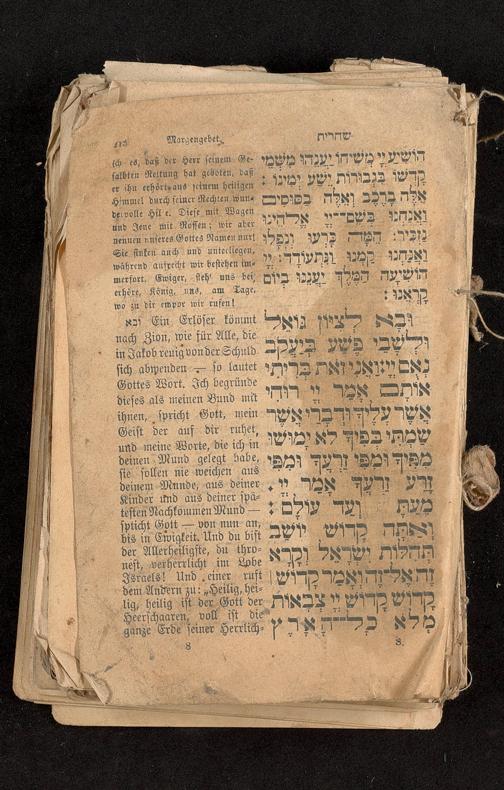 Morgengebet.
שחרית
ich es, daß der Herr seinem Ge-
salbten Rettung hat geboten, daß
er ihn erhört aus seinem heiligen
Himmel durch seiner Rechten wun-
dervolle Hilfe. Diese mit Wagen
und Jene mit Rossen; wir aber
nennen unseres Gottes Namen nur!
Sie sinken auch und unterliegen,
während aufrecht wir bestehen im-
merfort. Ewiger, steh' uns bei,
erhöre, König, uns, am Tage,
wo zu dir empor wir rufen!
ובא Ein Erlöser kömmt
nach Zion, wie für Alle, die
in Jakob reuig von der Schuld
sich abwenden — so lautet
Gottes Wort. Ich begründe
dieses als meinen Bund mit
ihnen, spricht Gott, mein
Geist der auf dir ruhet,
und meine Worte, die ich in
deinen Mund gelegt habe,
sie sollen nie weichen aus
deinem Munde, aus deiner
Kinder und aus deiner spä-
testen Nachkommen Mund —
spricht Gott — von nun an,
bis in Ewigkeit. Und du bist
der Allerheiligste, du thro-
nest, verherrlicht im Lobe
Israels! Und einer ruft
dem Andern zu: „Heilig, hei-
lig, heilig ist der Gott der
Heerschaaren, voll ist die
ganze Erde seiner Herrlich-
8
הוֹשִׁיעַ יְיָ מְשִׁיחוֹ יַעֲנֵהוּ מִשְּׁמֵי
קָדְשׁוֹ בִּגְבוּרוֹת יֵשַׁע יְמִינוֹ:
אֵלֶּה בָרֶכֶב וְאֵלֶּה בַסּוּסִים
וַאֲנַחְנוּ בְּשֵׁם־יְיָ אֱלֹהֵינוּ
נַזְכִּיר: הֵמָּה כָּרְעוּ וְנָפָלוּ
וַאֲנַחְנוּ קַמְנוּ וַנִּתְעוֹדָד: יְיָ
הוֹשִׁיעָה הַמֶּלֶךְ יַעֲנֵנוּ בְיוֹם
קָרְאֵנוּ:
וּבָא לְצִיּוֹן גּוֹאֵל
וּלְשָׁבֵי פֶשַׁע בְּיַעֲקֹב
נְאֻם יְיָ: וַאֲנִי זֹאת בְּרִיתִי
אוֹתָם אָמַר יְיָ רוּחִי
אֲשֶׁר עָלֶיךָ וּדְבָרַי אֲשֶׁר
שַׂמְתִּי בְּפִיךָ לֹא יָמוּשׁוּ
מִפִּיךָ וּמִפִּי זַרְעֲךָ וּמִפִּי
זֶרַע זַרְעֲךָ אָמַר יְיָ:
מֵעַתָּה וְעַד עוֹלָם:
וְאַתָּה קָדוֹשׁ יוֹשֵׁב
תְּהִלּוֹת יִשְׂרָאֵל וְקָרָא
זֶה אֶל־זֶה וְאָמַר קָדוֹשׁ ׀
קָדוֹשׁ קָדוֹשׁ יְיָ צְבָאוֹת
מְלֹא כָל־הָאָרֶץ
8.